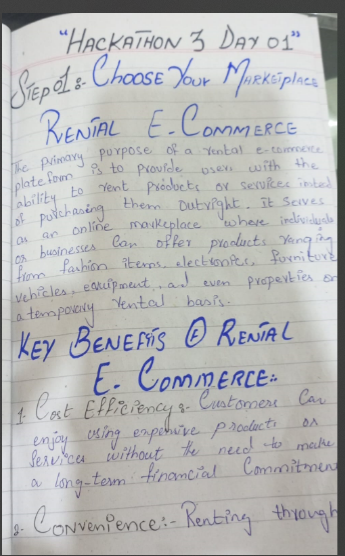 "HACKATHON 3 DAY 01"
STEP 01:- CHOOSE YOUR MARKETPLACE
RENTAL E-COMMERCE
The primary purpose of a rental e-commerce
plateform is to provide users with the
ability to rent products or services insted
of purchasing them outright. It serves
as an online markeplace where individuals
or businesses can offer products ranging
from fashion items, electronics, furniture
vehicles, equipment, and even properties on
a temporary rental basis.
KEY BENEFITS OF RENTAL
E-COMMERCE:-
1. Cost Efficiency:- Customers can
enjoy using expensive products or
services without the need to make
a long-term financial Commitment
2- CONVENIENCE:- Renting through